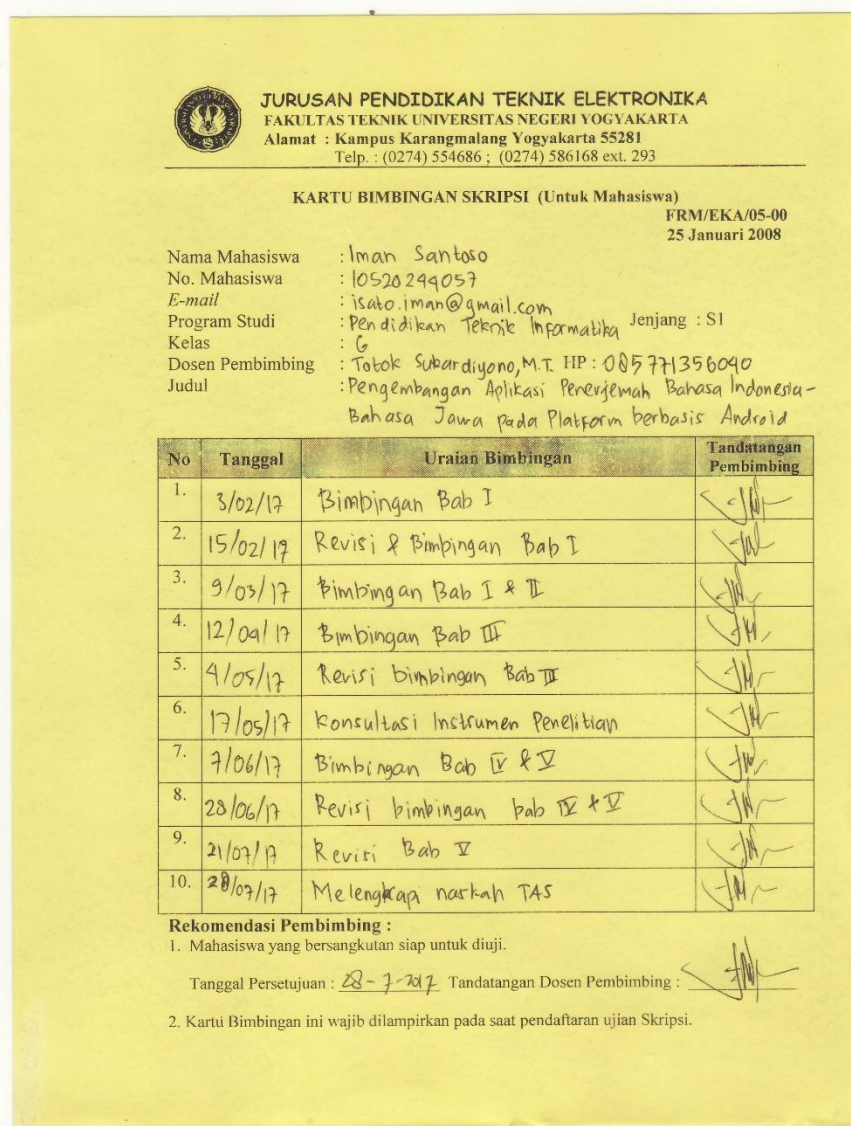 JURUSAN PENDIDIKAN TEKNIK ELEKTRONIKA
FAKULTAS TEKNIK UNIVERSITAS NEGERI YOGYAKARTA
Alamat : Kampus Karangmalang Yogyakarta 55281
Telp. : (0274) 554686 ; (0274) 586168 ext. 293
KARTU BIMBINGAN SKRIPSI (Untuk Mahasiswa)
FRM/EKA/05-00
25 Januari 2008
Nama Mahasiswa : Iman Santoso
No. Mahasiswa : 10520244057
E-mail : isato.iman@gmail.com
Program Studi : Pendidikan Teknik Informatika Jenjang : S1
Kelas : G
Dosen Pembimbing : Totok Sukardiyono, M.T. HP : 085771356040
Judul : Pengembangan Aplikasi Penerjemah Bahasa Indonesia-
Bahasa Jawa pada Platform berbasis Android
No Tanggal Uraian Bimbingan Tandatangan Pembimbing
1. 3/02/17 Bimbingan Bab I
2. 15/02/17 Revisi & Bimbingan Bab I
3. 9/03/17 Bimbingan Bab I & II
4. 12/04/17 Bimbingan Bab III
5. 4/05/17 Revisi bimbingan Bab III
6. 17/05/17 Konsultasi Instrumen Penelitian
7. 7/06/17 Bimbingan Bab IV & V
8. 28/06/17 Revisi bimbingan bab IV & V
9. 21/07/17 Revisi Bab V
10. 28/07/17 Melengkapi naskah TAS
Rekomendasi Pembimbing :
1. Mahasiswa yang bersangkutan siap untuk diuji.
Tanggal Persetujuan : 28-7-2017 Tandatangan Dosen Pembimbing :
2. Kartu Bimbingan ini wajib dilampirkan pada saat pendaftaran ujian Skripsi.